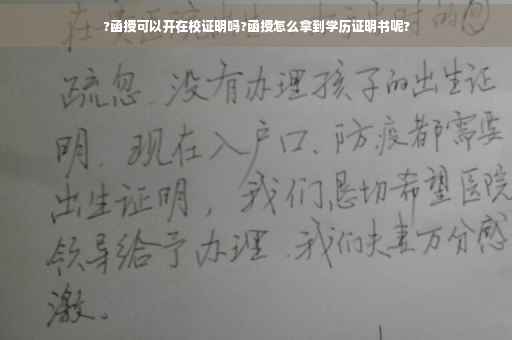 ?函授可以开在校证明吗?函授怎么拿到学历证明书呢?
疏忽.没有办理孩子的出生证
明.现在入户口、防疫都需要
出生证明，我们恳切希望医院
领导给予办理.我们夫妻万分感
激。